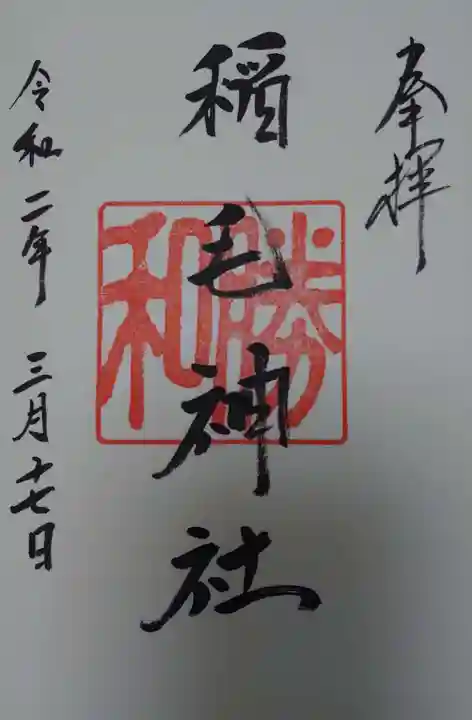 奉拝
稲毛神社
勝和
令和二年 三月十七日